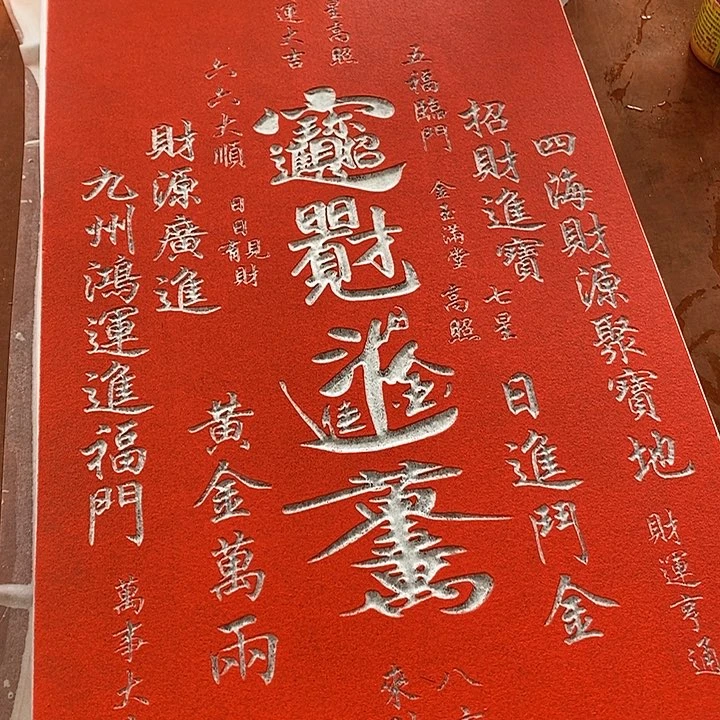 四海財源聚寶地
財運亨通
招財進寶
日進鬥金
七星
高照
五福臨門
金玉滿堂
星高照
八
來
運大吉
六六大順
日日
見財
財源廣進
黃金萬兩
九州鴻運進福門
萬事大